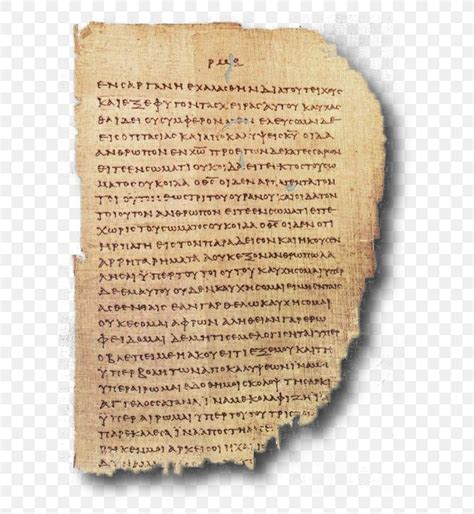 ΕΝϹΑΡΓΑΝΗΕΧΑΛΑϹΘΗΝΔΙΑΤΟΥΤΕΙΧΟΥϹ
ΚΑΙΕΞΕΦΥΓΟΝΤΑϹΧΕΙΡΑϹΑΥΤΟΥΚΑΥΧΑϹ
ΘΑΙΔΕΙΟΥϹΥΜΦΕΡΟΝΜΕΝΕΛΕΥϹΟΜΑΙΔΕ
ΕΙϹΟΠΤΑϹΙΑϹΚΑΙΑΠΟΚΑΛΥΨΕΙϹΚ̅Υ̅ΟΙΔΑ
ΑΝΘΡΩΠΟΝΕΝΧ̅Ω̅ΠΡΟΕΤΩΝΔΕΚΑΤΕϹϹΑΡΩΝ
ΕΙΤΕΕΝϹΩΜΑΤΙΟΥΚΟΙΔΑΕΙΤΕΕΚΤΟϹΤΟΥϹΩ
ΜΑΤΟϹΟΥΚΟΙΔΑΟΘ̅Ϲ̅ΟΙΔΕΝΑΡΠΑΓΕΝΤΑΤΟΝ
ΤΟΙΟΥΤΟΝΕΩϹΤΡΙΤΟΥΟΥΡΑΝΟΥΚΑΙΟΙΔΑΤΟΝ
ΤΟΙΟΥΤΟΝΑΝΘΡΩΠΟΝΕΙΤΕΕΝϹΩΜΑΤΙΕΙΤΕ
ΧΩΡΙϹΤΟΥϹΩΜΑΤΟϹΟΥΚΟΙΔΑΟΘ̅Ϲ̅ΟΙΔΕΝΟΤΙ
ΗΡΠΑΓΗΕΙϹΤΟΝΠΑΡΑΔΕΙϹΟΝΚΑΙΗΚΟΥϹΕΝ
ΑΡΡΗΤΑΡΗΜΑΤΑΑΟΥΚΕΞΟΝΑΝΘΡΩΠΩΛΑ
ΛΗϹΑΙΫΠΕΡΤΟΥΤΟΙΟΥΤΟΥΚΑΥΧΗϹΟΜΑΙΫΠΕΡ
ΔΕΕΜΑΥΤΟΥΟΥΔΕΝΚΑΥΧΗϹΟΜΑΙΕΙΜΗΕΝΤΑΙϹ
ΑϹΘΕΝΕΙΑΙϹΕΑΝΓΑΡΘΕΛΩΚΑΥΧΗϹΟΜΑΙ
ΟΥΚΕϹΟΜΑΙΑΦΡΩΝΑΛΗΘΕΙΑΝΓΑΡΕΡΩ
ΦΕΙΔΟΜΑΙΔΕΜΗΤΙϹΕΜΕΛΟΓΙϹΗΤΑΙΫΠΕΡ
ΟΒΛΕΠΕΙΜΕΗΑΚΟΥΕΙΤΙΕΞΕΜΟΥΚΑΙΤΗ
ΫΠΕΡΒΟΛΗΤΩΝΑΠΟΚΑΛΥΨΕΩΝΪΝΑΜΗ
ΫΠΕΡΑΙΡΩΜΑΙΕΔΟΘΗΜΟΙϹΚΟΛΟΨΤΗϹΑΡΚΙ
ΑΓΓΕΛΟϹϹΑΤΑΝΑΪΝΑΜΕΚΟΛΑΦΙΖΗΪΝΑΜΗ
ΫΠΕΡΑΙΡΩΜΑΙΫΠΕΡΤΟΥΤΟΥΤΡΙϹΤΟΝ
ΠΑΡΕΚΑΛΕϹΑΪΝΑΑΠΟϹΤΗΑΠ